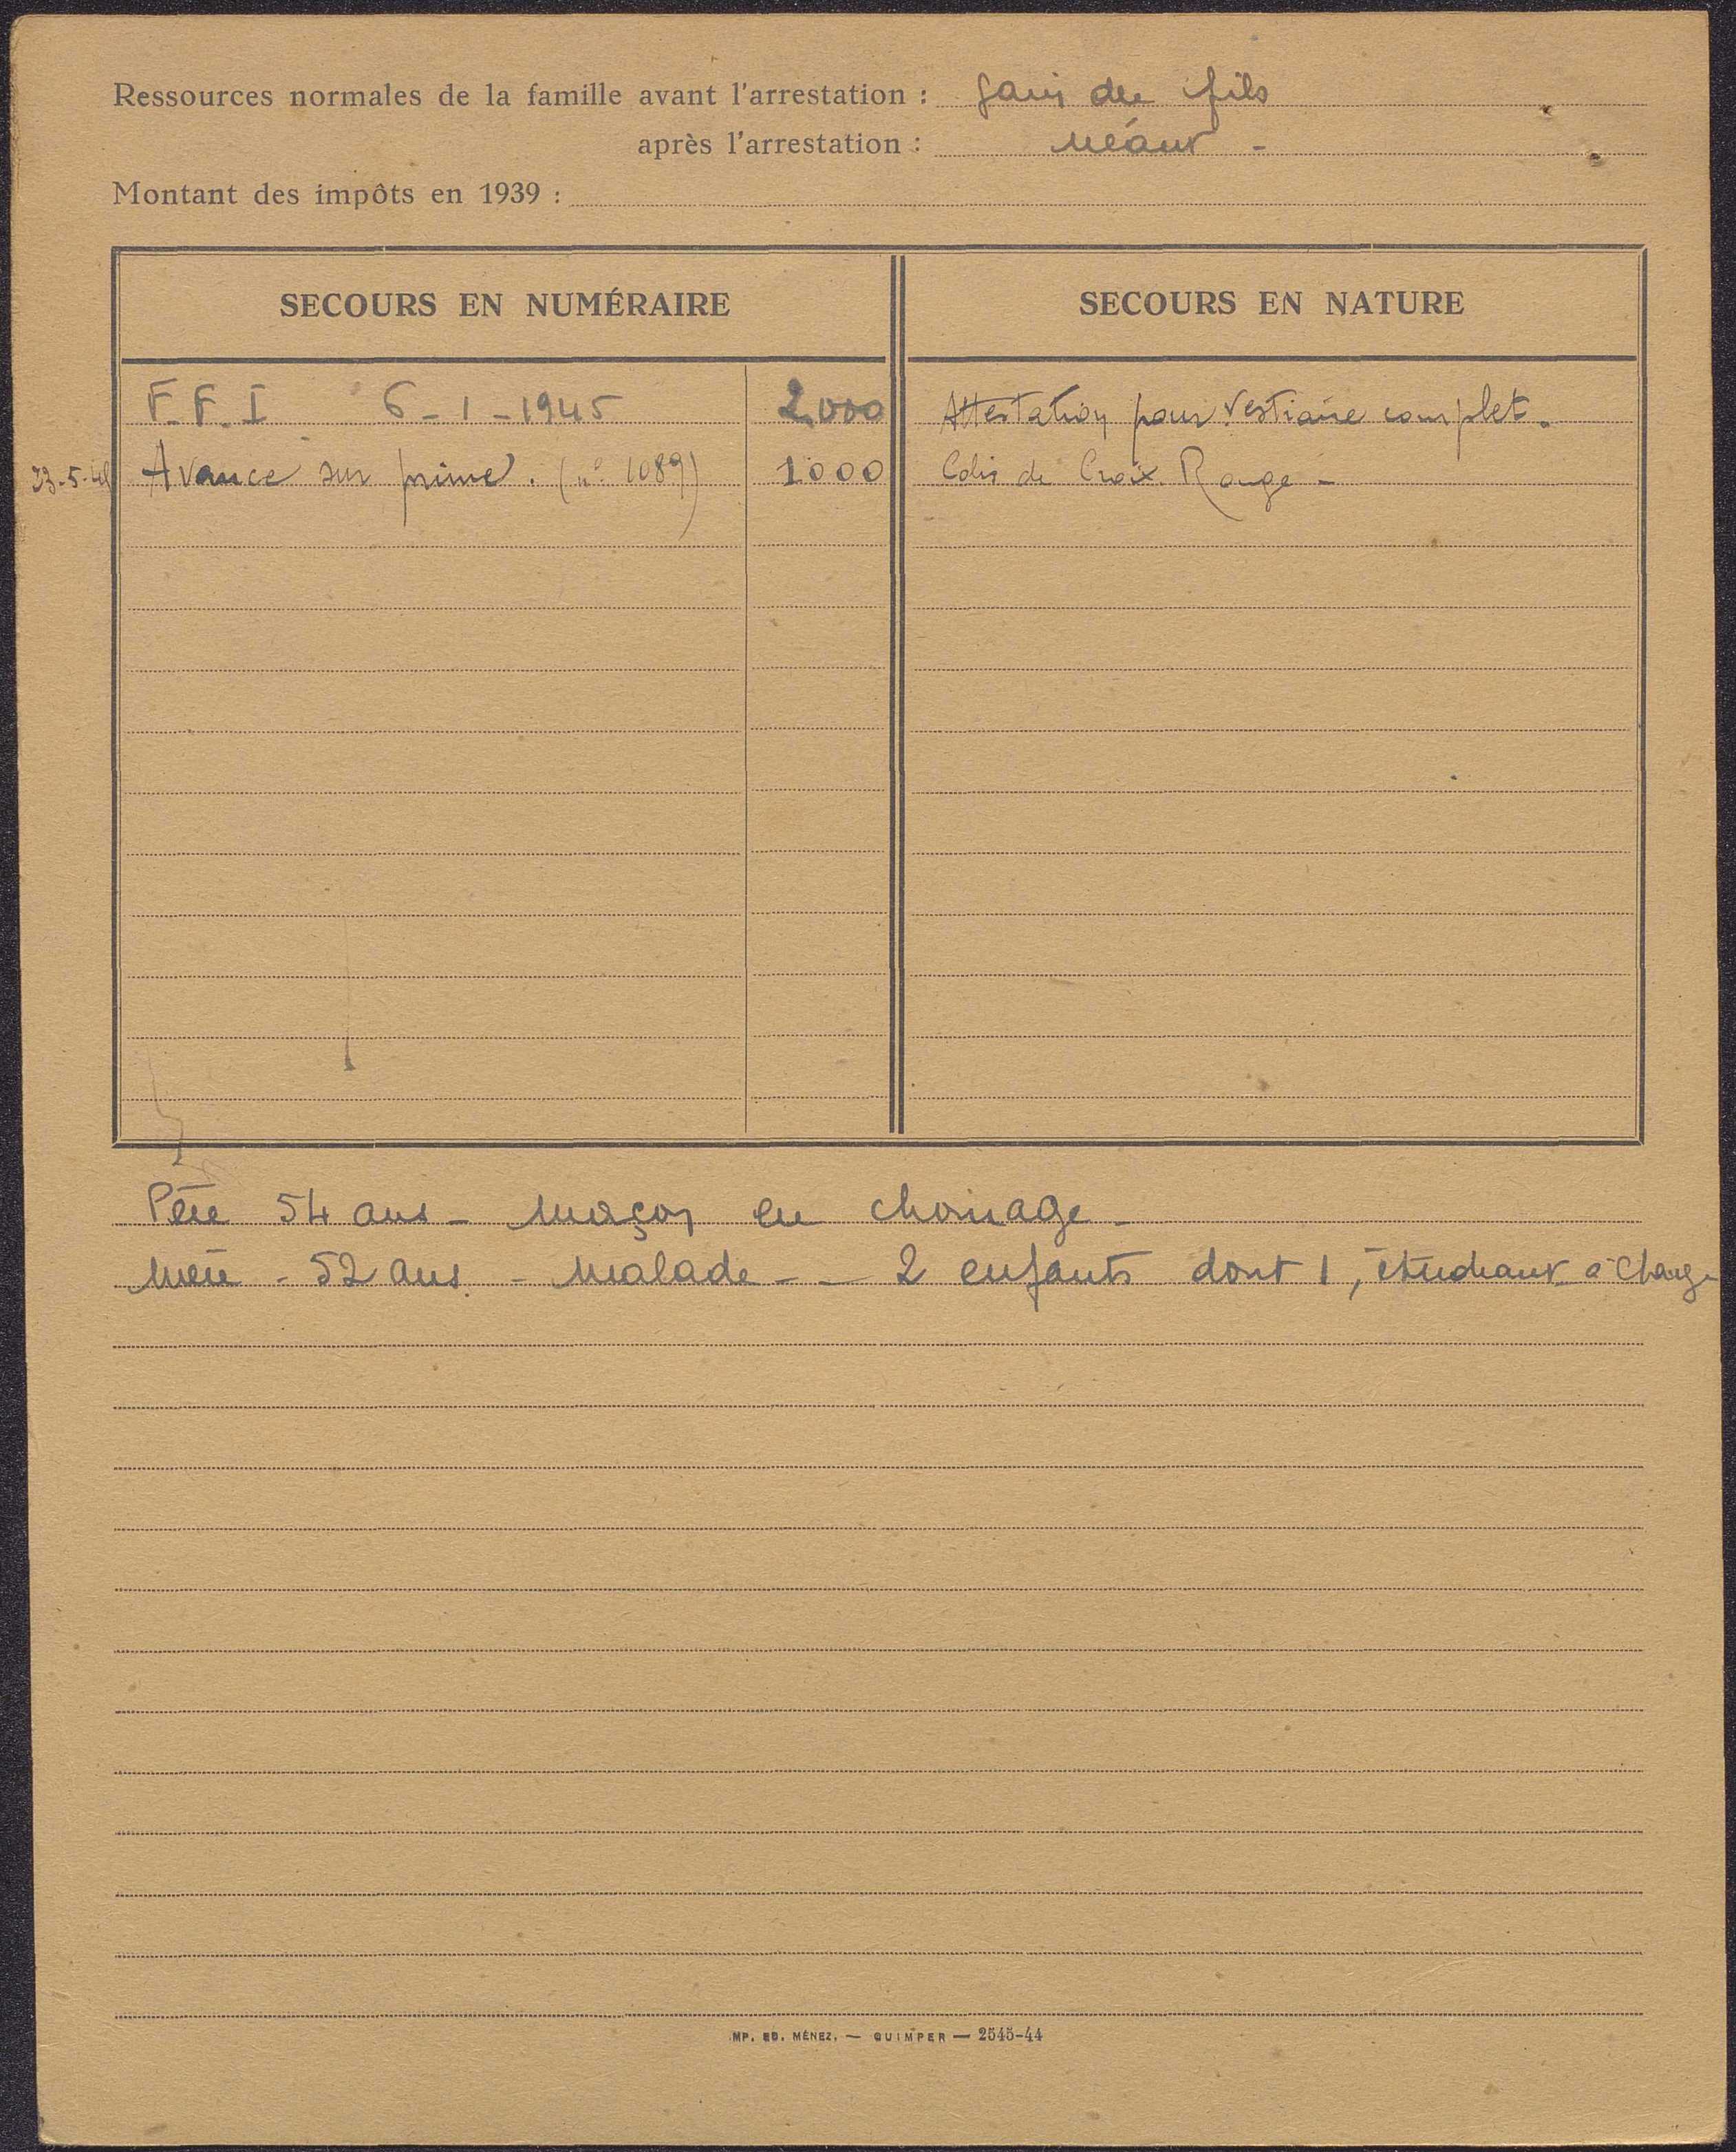 Ressources normales de la famille avant l'arrestation : gain du fils
après l'arrestation : néant -
Montant des impôts en 1939 :
SECOURS EN NUMÉRAIRE
SECOURS EN NATURE
F.F.I 6-1-1945 2.000
Attestation pour vestiaire complet.
23-5-45 Avance sur prime. (n° 1089) 1000
Colis de Croix Rouge -
Père 54 ans - maçon en chomage -
mère - 52 ans. - malade - - 2 enfants dont 1, étudiant à charge
IMP. ED. MÉNEZ. — QUIMPER — 2545-44